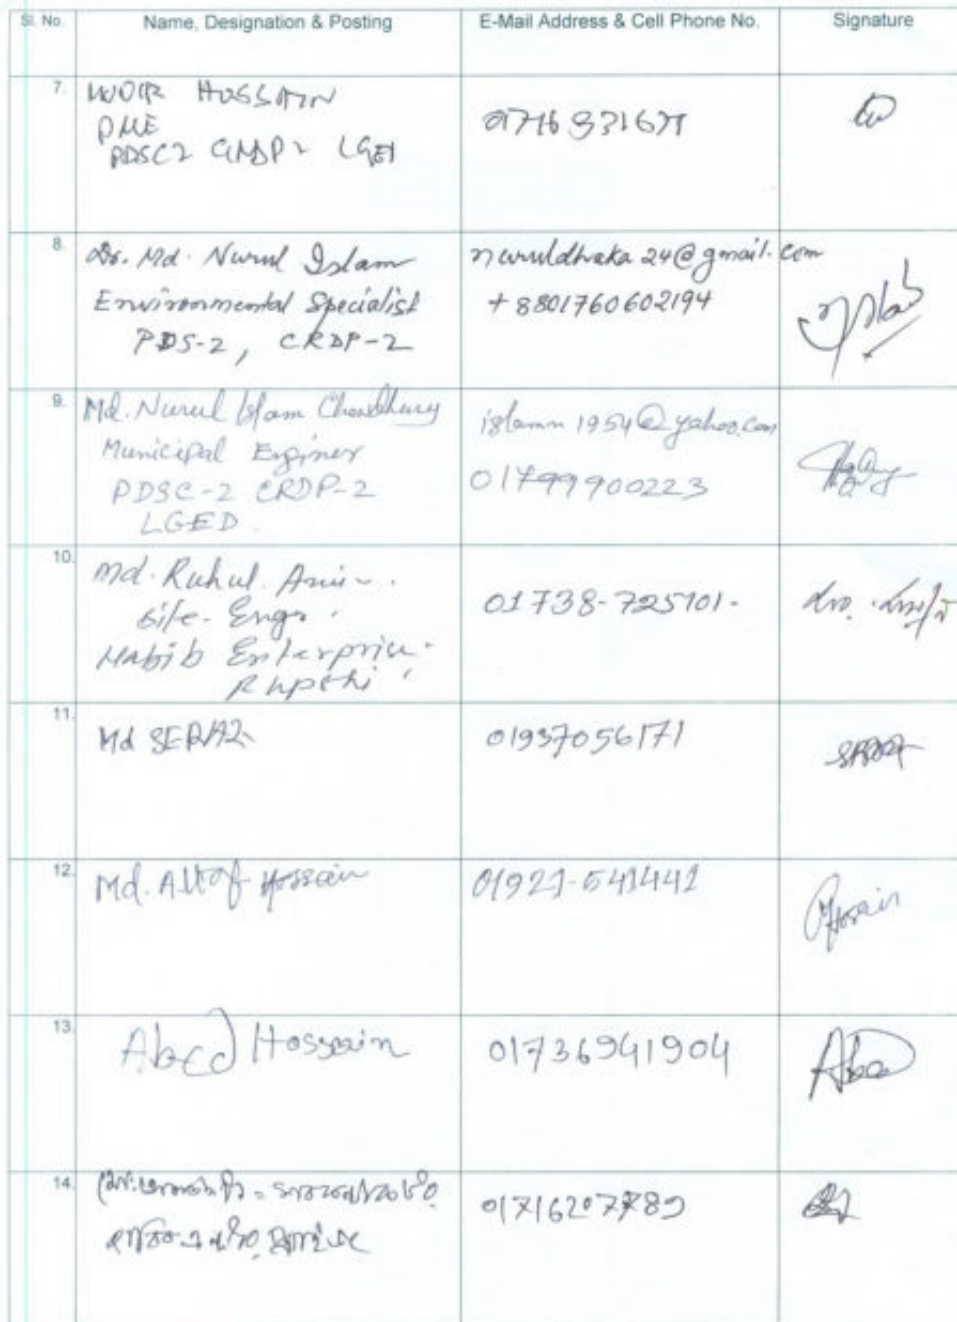 Sl. No.
Name, Designation & Posting
E-Mail Address & Cell Phone No.
Signature
7.
HOSSAIN
DME
PDSC2 LGED
8.
Dr. Md. Nurul Islam
Environmental Specialist
PDS-2, CRDP-2
nuruldhaka24@gmail.com
+8801760602194
9.
Md. Nurul Islam Chowdhury
Municipal Enginer
PDSC-2 CRDP-2
LGED
islamn1954@yahoo.com
01799900223
10.
Md. Ruhul Amin.
Site-Engr.
Habib Enterprise
01738-725701-
11.
Md
01937056171
12.
Md. Altaf Hossain
01921-541441
Hossain
13.
Abed Hossain
01736941904
Abed
14.
01716207789